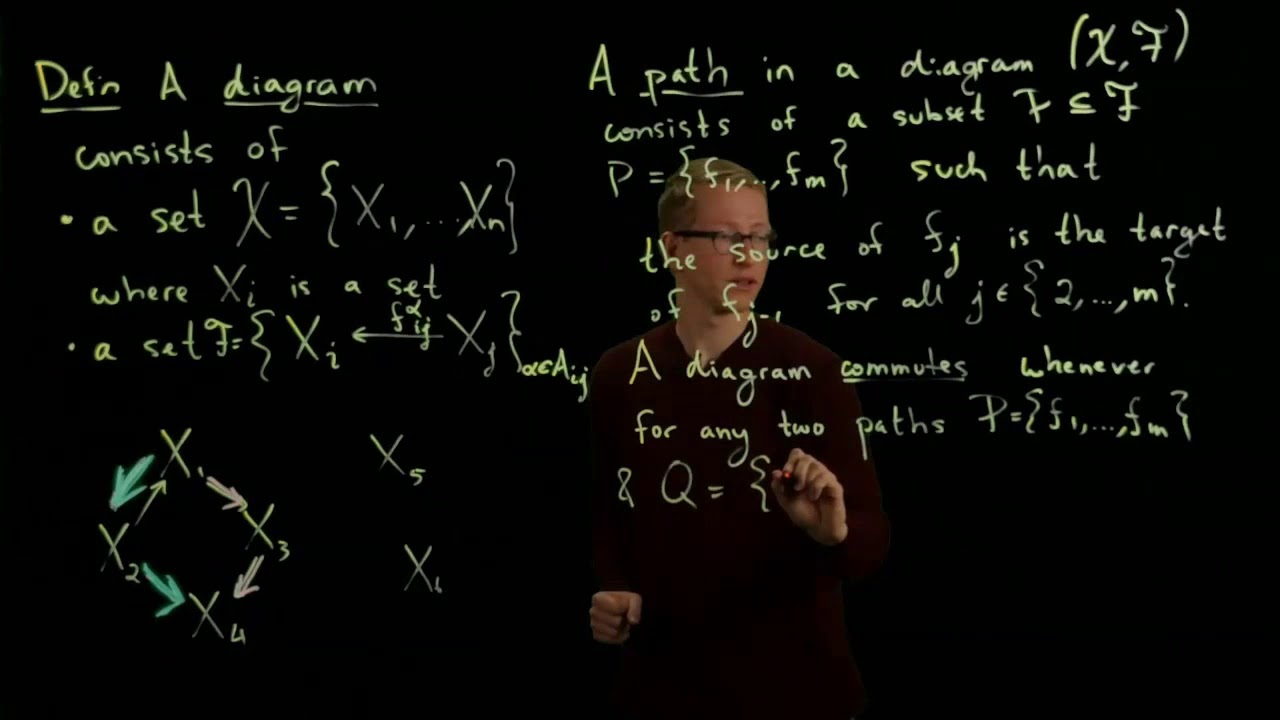 Defn A diagram
consists of
• a set 𝒳 = {X₁, ... Xₙ}
where Xᵢ is a set
• a set ℱ = {Xᵢ ←f^α_ij Xⱼ}_α∈A_ij
X₁
X₂
X₃
X₄
X₅
X₆
A path in a diagram (𝒳, ℱ)
consists of a subset P ⊆ ℱ
P = {f₁, ..., fₘ} such that
the source of fⱼ is the target
of fⱼ₋₁ for all j ∈ {2, ..., m}.
A diagram commutes whenever
for any two paths P = {f₁, ..., fₘ}
& Q = {